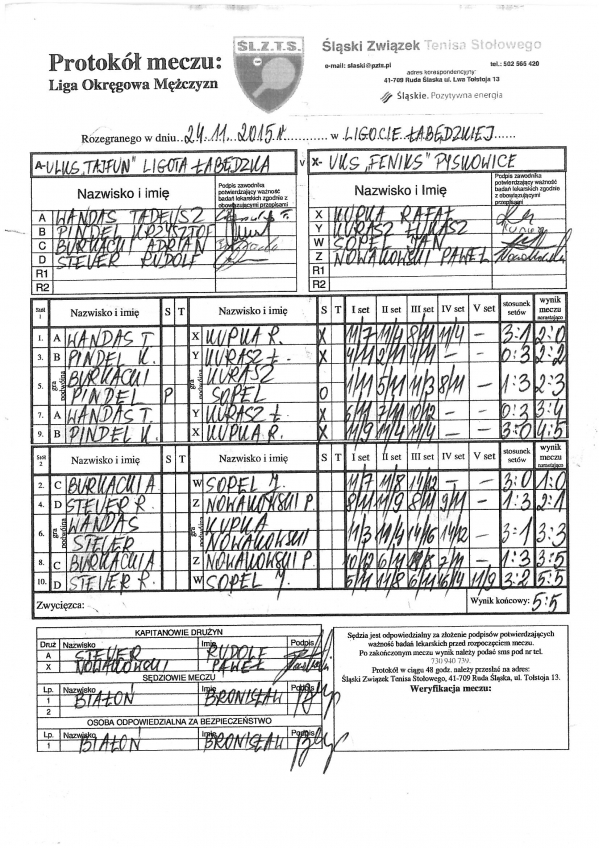 Protokół meczu:
Liga Okręgowa Mężczyzn
ŚL.Z.T.S.
Śląski Związek Tenisa Stołowego
e-mail: slaski@pzts.pl tel.: 502 565 420
adres korespondencyjny:
41-709 Ruda Śląska ul. Lwa Tołstoja 13
Śląskie. Pozytywna energia
Rozegranego w dniu 24.11.2015 r. w LIGOCIE ŁABĘDZKIEJ
A- ULKS "TAJFUN" LIGOTA ŁABĘDZKA v X- UKS "FENIKS" PYSKOWICE
Nazwisko i imię Podpis zawodnika potwierdzający ważność badań lekarskich zgodnie z obowiązującymi przepisami Nazwisko i Imię Podpis zawodnika potwierdzający ważność badań lekarskich zgodnie z obowiązującymi przepisami
A WANDAS TADEUSZ X KUPKA RAFAŁ
B PINDEL KRZYSZTOF Y KURASZ ŁUKASZ
C BURNACKI ADRIAN W SOPEL JAN
D STEUER RUDOLF Z NOWAKOWSKI PAWEŁ
R1 R1
R2 R2
Stół 1 Nazwisko i imię S T Nazwisko i imię S T I set II set III set IV set V set stosunek setów wynik meczu narastająco
1. A WANDAS T X KUPKA R. X 11/7 11/4 8/11 11/4 - 3:1 2:0
3. B PINDEL K. Y KURASZ Ł. X 4/11 2/11 4/11 - - 0:3 2:2
5. gra podwójna BURNACKI PINDEL P gra podwójna KURASZ SOPEL O 1/11 5/11 11/3 8/11 - 1:3 2:3
7. A WANDAS T. Y KURASZ Ł X 6/11 7/11 10/12 - - 0:3 3:4
9. B PINDEL K. X KUPKA R. X 11/9 11/4 11/4 - - 3:0 4:5
Stół 2 Nazwisko i imię S T Nazwisko i imię S T I set II set III set IV set V set stosunek setów wynik meczu narastająco
2. C BURNACKI A W SOPEL J. 11/7 11/8 14/12 - - 3:0 1:0
4. D STEUER R. Z NOWAKOWSKI P. 8/11 11/9 8/11 9/11 - 1:3 2:1
6. gra podwójna WANDAS STEUER KUPKA NOWAKOWSKI 11/3 11/4 14/16 14/12 - 3:1 3:3
8. C BURNACKI A Z NOWAKOWSKI P. 10/12 7/11 - 1:3 3:5
10. D STEUER R. W SOPEL J. 5/11 11/8 6/11 11/9 3:2 5:5
Zwycięzca: Wynik końcowy: 5:5
KAPITANOWIE DRUŻYN
Druż Nazwisko Imię Podpis
A STEUER RUDOLF
X NOWAKOWSKI PAWEŁ
SĘDZIOWIE MECZU
Lp. Nazwisko Imię Podpis
1 BIAŁOŃ BRONISŁAW
2
OSOBA ODPOWIEDZIALNA ZA BEZPIECZEŃSTWO
Lp. Nazwisko Imię Podpis
1 BIAŁOŃ BRONISŁAW
Sędzia jest odpowiedzialny za złożenie podpisów potwierdzających
ważność badań lekarskich przed rozpoczęciem meczu.
Po zakończonym meczu wynik należy podać sms pod nr tel.
730 940 739.
Protokół w ciągu 48 godz. należy przesłać na adres:
Śląski Związek Tenisa Stołowego, 41-709 Ruda Śląska, ul. Tołstoja 13.
Weryfikacja meczu: